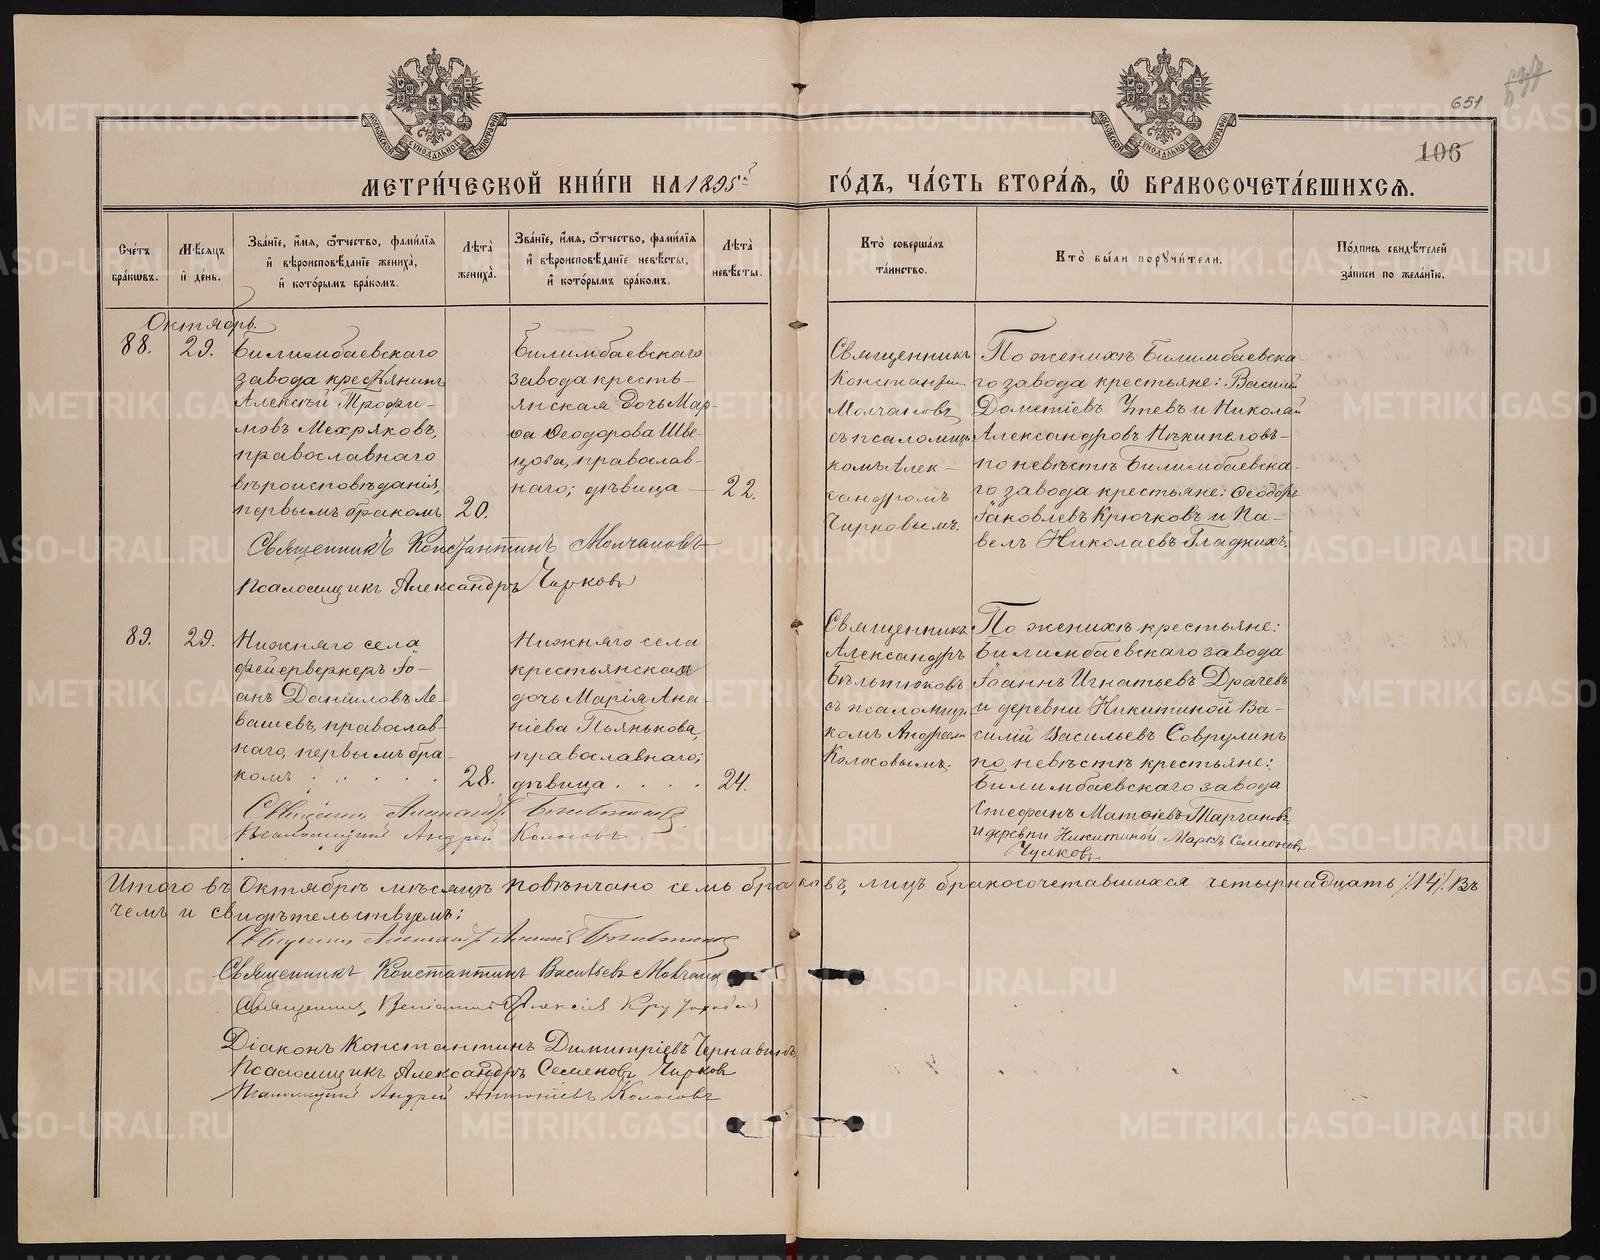 651
106
МЕТРИ́ЧЕСКОЙ КНИ́ГИ НА 1895й ГО́ДЪ, ЧА́СТЬ ВТОРА́Я, Ѽ БРАКОСОЧЕТА́ВШИХСЯ.
Сче́тъ бра́кѡвъ.
Мѣ́сяцъ и҆ де́нь.
Зва́нїе, и҆́мя, ѻ҆́тчество, фами́лїя и҆ вѣроисповѣ́данїе жениха̀, и҆ кото́рымъ бра́комъ.
Лѣ́та жениха̀.
Зва́нїе, и҆́мя, ѻ҆́тчество, фами́лїя и҆ вѣроисповѣ́данїе невѣ́сты, и҆ кото́рымъ бра́комъ.
Лѣ́та невѣ́сты.
Кто̀ соверша́лъ та́инство.
Кто̀ бы́ли порꙋчи́тели.
По́дпись свидѣ́телей за́писи по жела́нїю.
Октябрь.
88.
29.
Билимбаевскаго
завода крестьянинъ
Алексѣй Трофи-
мовъ Мехряковъ,
православнаго
вѣроисповѣданія,
первымъ бракомъ
20.
Билимбаевскаго
завода кресть-
янская дочь Мар-
ѳа Ѳеодорова Шве-
цова, православ-
наго; дѣвица
22.
Священникъ
Константин
Молчановъ
съ псаломщи
комъ Алек-
сандромъ
Чирковымъ.
По женихѣ Билимбаевска
го завода крестьяне: Василій
Дометіевъ Утевъ и Николай
Александровъ Нѣкипеловъ-
по невѣстѣ Билимбаевска-
го завода крестьяне: Ѳеодоръ
Іаковлевъ Крючковъ и Па-
велъ Николаевъ Гладкихъ.
Священникъ Константинъ Молчановъ
Псаломщикъ Александръ Чирковъ
89.
29.
Нижняго села
фейерверкеръ Іо-
анъ Даніиловъ Ле-
вашевъ, православ-
наго, первымъ бра-
комъ
28.
Нижняго села
крестьянская
дочь Марія Ана
ніева Пьянькова,
православнаго;
дѣвица
24.
Священникъ
Александръ
Бѣльтюковъ
съ псаломщи
комъ Андреем
Колосовымъ.
По женихѣ крестьяне:
Билимбаевскаго завода
Іоаннъ Игнатьевъ Драчевъ
и деревни Никитиной Ва-
силій Васильевъ Соврулинъ
по невѣстѣ крестьяне:
Билимбаевскаго завода
Стефанъ Матѳіевъ
и деревни Никитиной Маркъ Семеновъ
Чулковъ
Священникъ Александръ Бѣльтюковъ
Псаломщикъ Андрей Колосовъ.
Итого въ Октябрѣ мѣсяцѣ повѣнчано семь браковъ, лицъ бракосочетавшихся четырнадцать /14/. Въ
чемъ и свидѣтельствуемъ:
Священникъ Александръ Бѣльтюковъ
Священникъ Константинъ Васильевъ Молчановъ
Священникъ
Діаконъ Константинъ Димитріевъ Чернавинъ
Псаломщикъ Александръ Семеновъ Чирковъ
Псаломщикъ Андрей Антоніевъ Колосовъ
METRIKI.GASO-URAL.RU